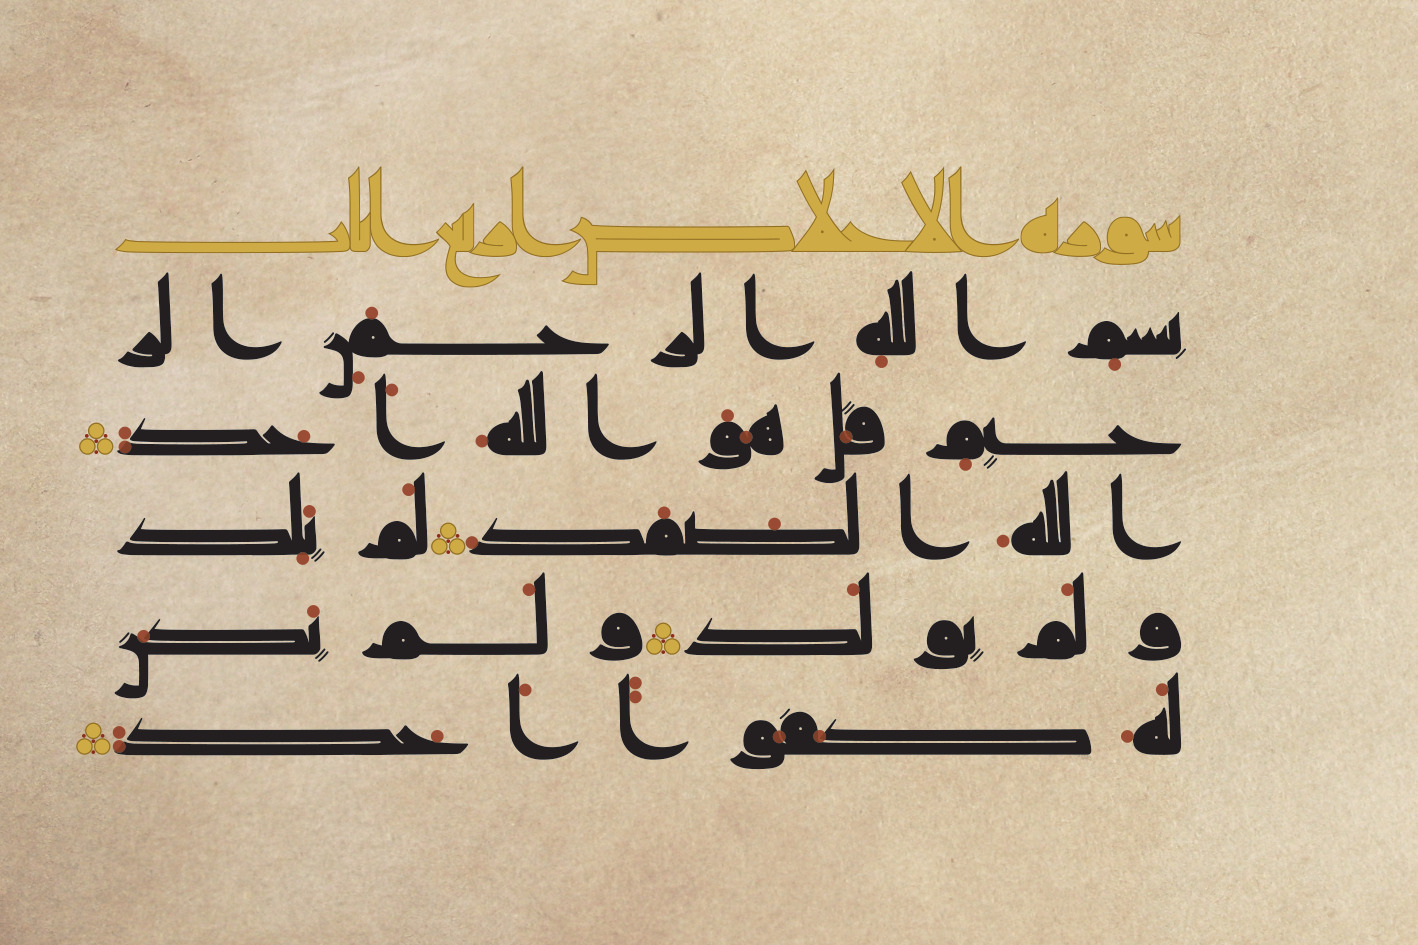 سورة الاخلاص اربع ايات
بسم الله الرحمن الر
حيم قل هو الله احد
الله الصمد لم يلد
و لم يولد و لم يكن
له كفوا احد